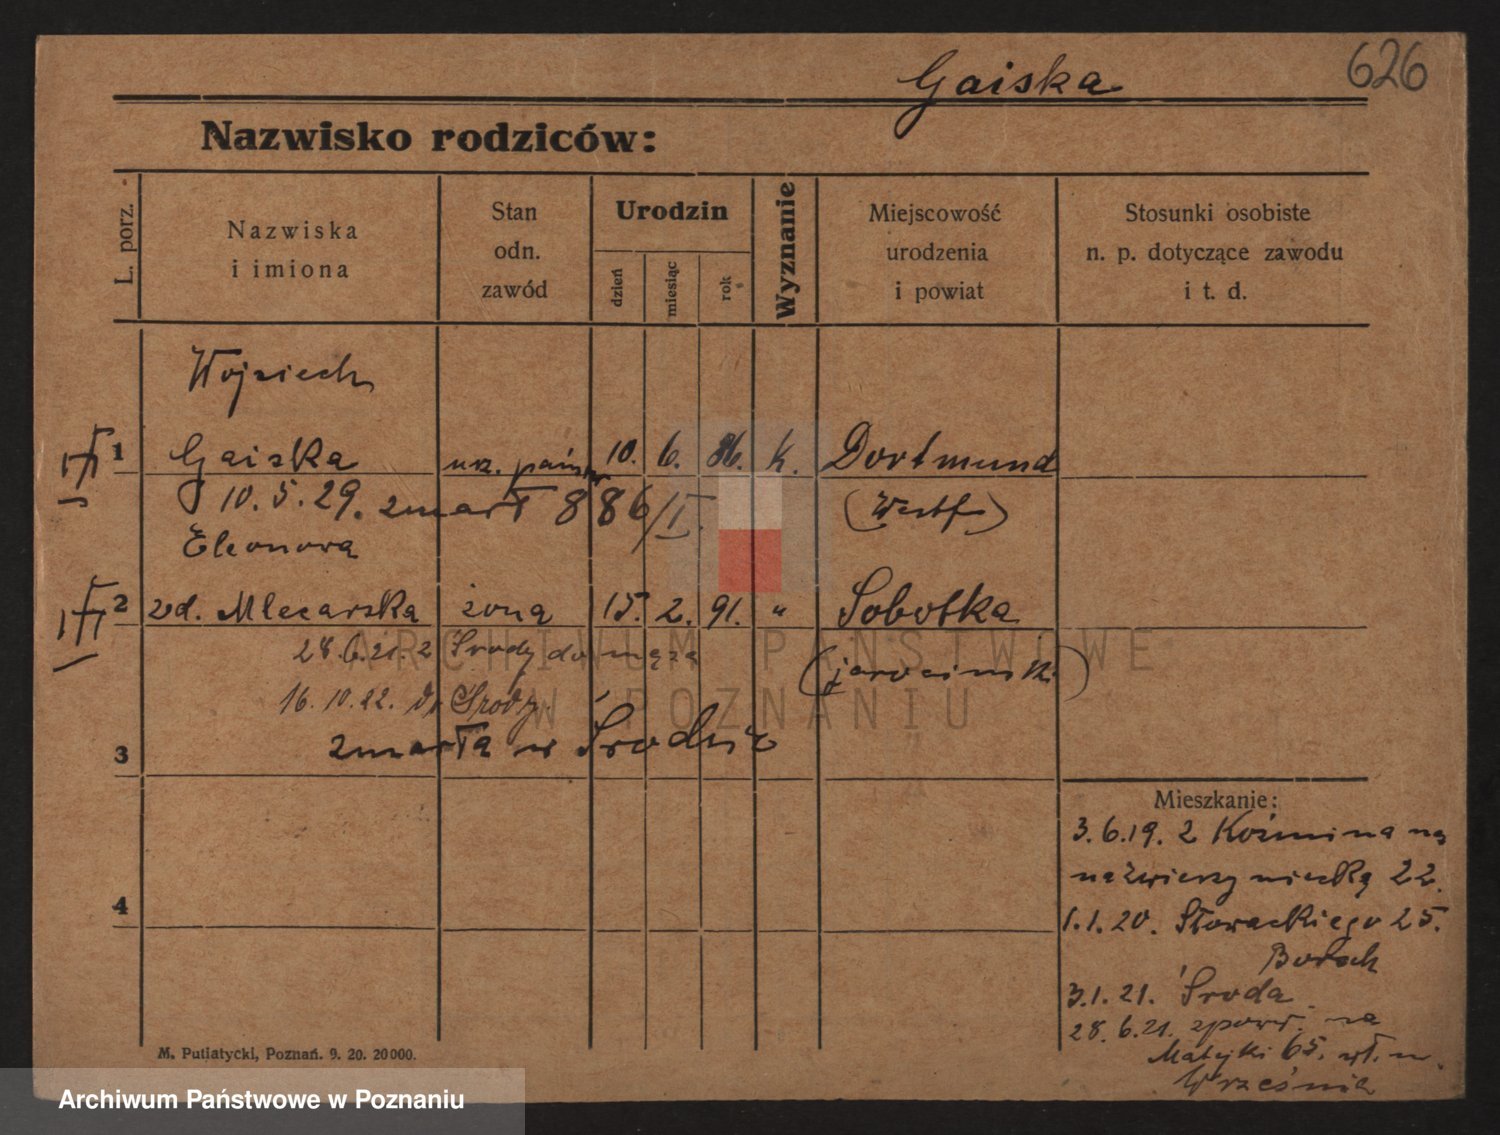 Gaiska
626
Nazwisko rodziców:
L. porz.
Nazwiska
i imiona
Stan
odn.
zawód
Urodzin
dzień
miesiąc
rok
Wyznanie
Miejscowość
urodzenia
i powiat
Stosunki osobiste
n. p. dotyczące zawodu
i t. d.
Wojciech
1 Gaiska urz. państw 10. 6. 86. k. Dortmund
10.5.29. zmarł 886/I. (Westf)
Eleonora
2 zd. Mlecarska żona 15. 2. 91. " Sobotka
28.6.21. z Środy do męża (jarocinski)
16.10.22. do Środy.
3 zmarła w Środzie
Mieszkanie:
3.6.19. z Koźmina na
na Zwierzyniecką 22.
4
1.1.20. Słowackiego 25.
3.1.21. Środa
28.6.21. zpowr. na
Matejki 65. wł. m.
Września
M. Putiatycki, Poznań. 9. 20. 20000.
ARCHIWUM PAŃSTWOWE
W POZNANIU
Archiwum Państwowe w Poznaniu